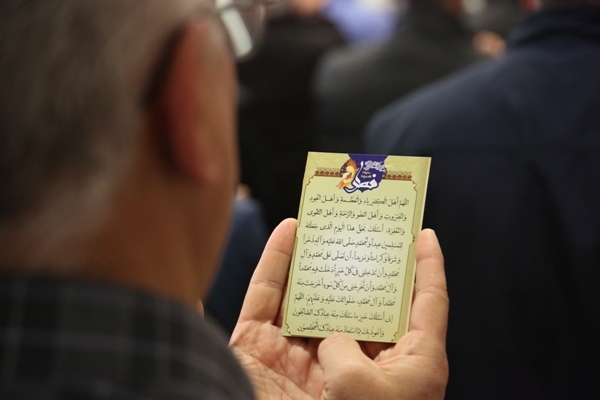 فطر
اللّهُمَّ أَهْلَ الْكِبْرِياءِ وَالْعَظَمَةِ وَأَهْلَ الْجُودِ
وَالْجَبَرُوتِ وَأَهْلَ الْعَفْوِ وَالرَّحْمَةِ وَأَهْلَ التَّقْوى
وَالْمَغْفِرَةِ، أَسْأَلُكَ بِحَقِّ هذَا الْيَوْمِ الَّذي جَعَلْتَهُ
لِلْمُسْلِمينَ عيداً وَلِمُحَمَّدٍ صَلَّى اللهُ عَلَيْهِ وَآلِهِ ذُخْراً
وَشَرَفاً وَكَرامَةً وَمَزيداً، أَنْ تُصَلِّيَ عَلى مُحَمَّدٍ وَآلِ
مُحَمَّدٍ، وَأَنْ تُدْخِلَني في كُلِّ خَيْرٍ أَدْخَلْتَ فيهِ مُحَمَّداً
وَآلَ مُحَمَّدٍ، وَأَنْ تُخْرِجَني مِنْ كُلِّ سُوءٍ أَخْرَجْتَ مِنْهُ
مُحَمَّداً وَآلَ مُحَمَّدٍ، صَلَواتُكَ عَلَيْهِ وَعَلَيْهِمْ، اللّهُمَّ
إِنّي أَسْأَلُكَ خَيْرَ ما سَأَلَكَ مِنْهُ عِبادُكَ الصّالِحُونَ
وَأَعُوذُ بِكَ مِمَّا اسْتَعاذَ مِنْهُ عِبادُكَ الْمُخْلَصُونَ